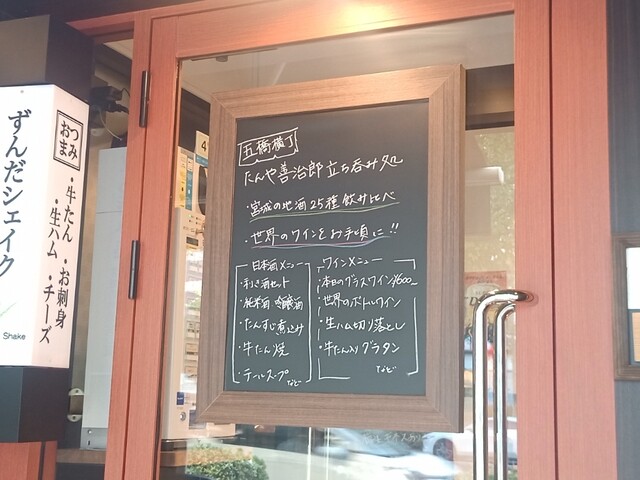 おつまみ
・牛たん ・お刺身
・生ハム ・チーズ
ずんだシェイク
Shake
五橋横丁
たんや善治郎立ち呑み処
・宮城の地酒25種飲み比べ
・世界のワインをお手頃に!!
日本酒メニュー
・利き酒セット
・純米酒・吟醸酒
・たんすじ煮込み
・牛たん焼
・テールスープ
など
ワインメニュー
・本日のグラスワイン¥600
・世界のボトルワイン
・生ハム切り落とし
・牛たん入りグラタン
など